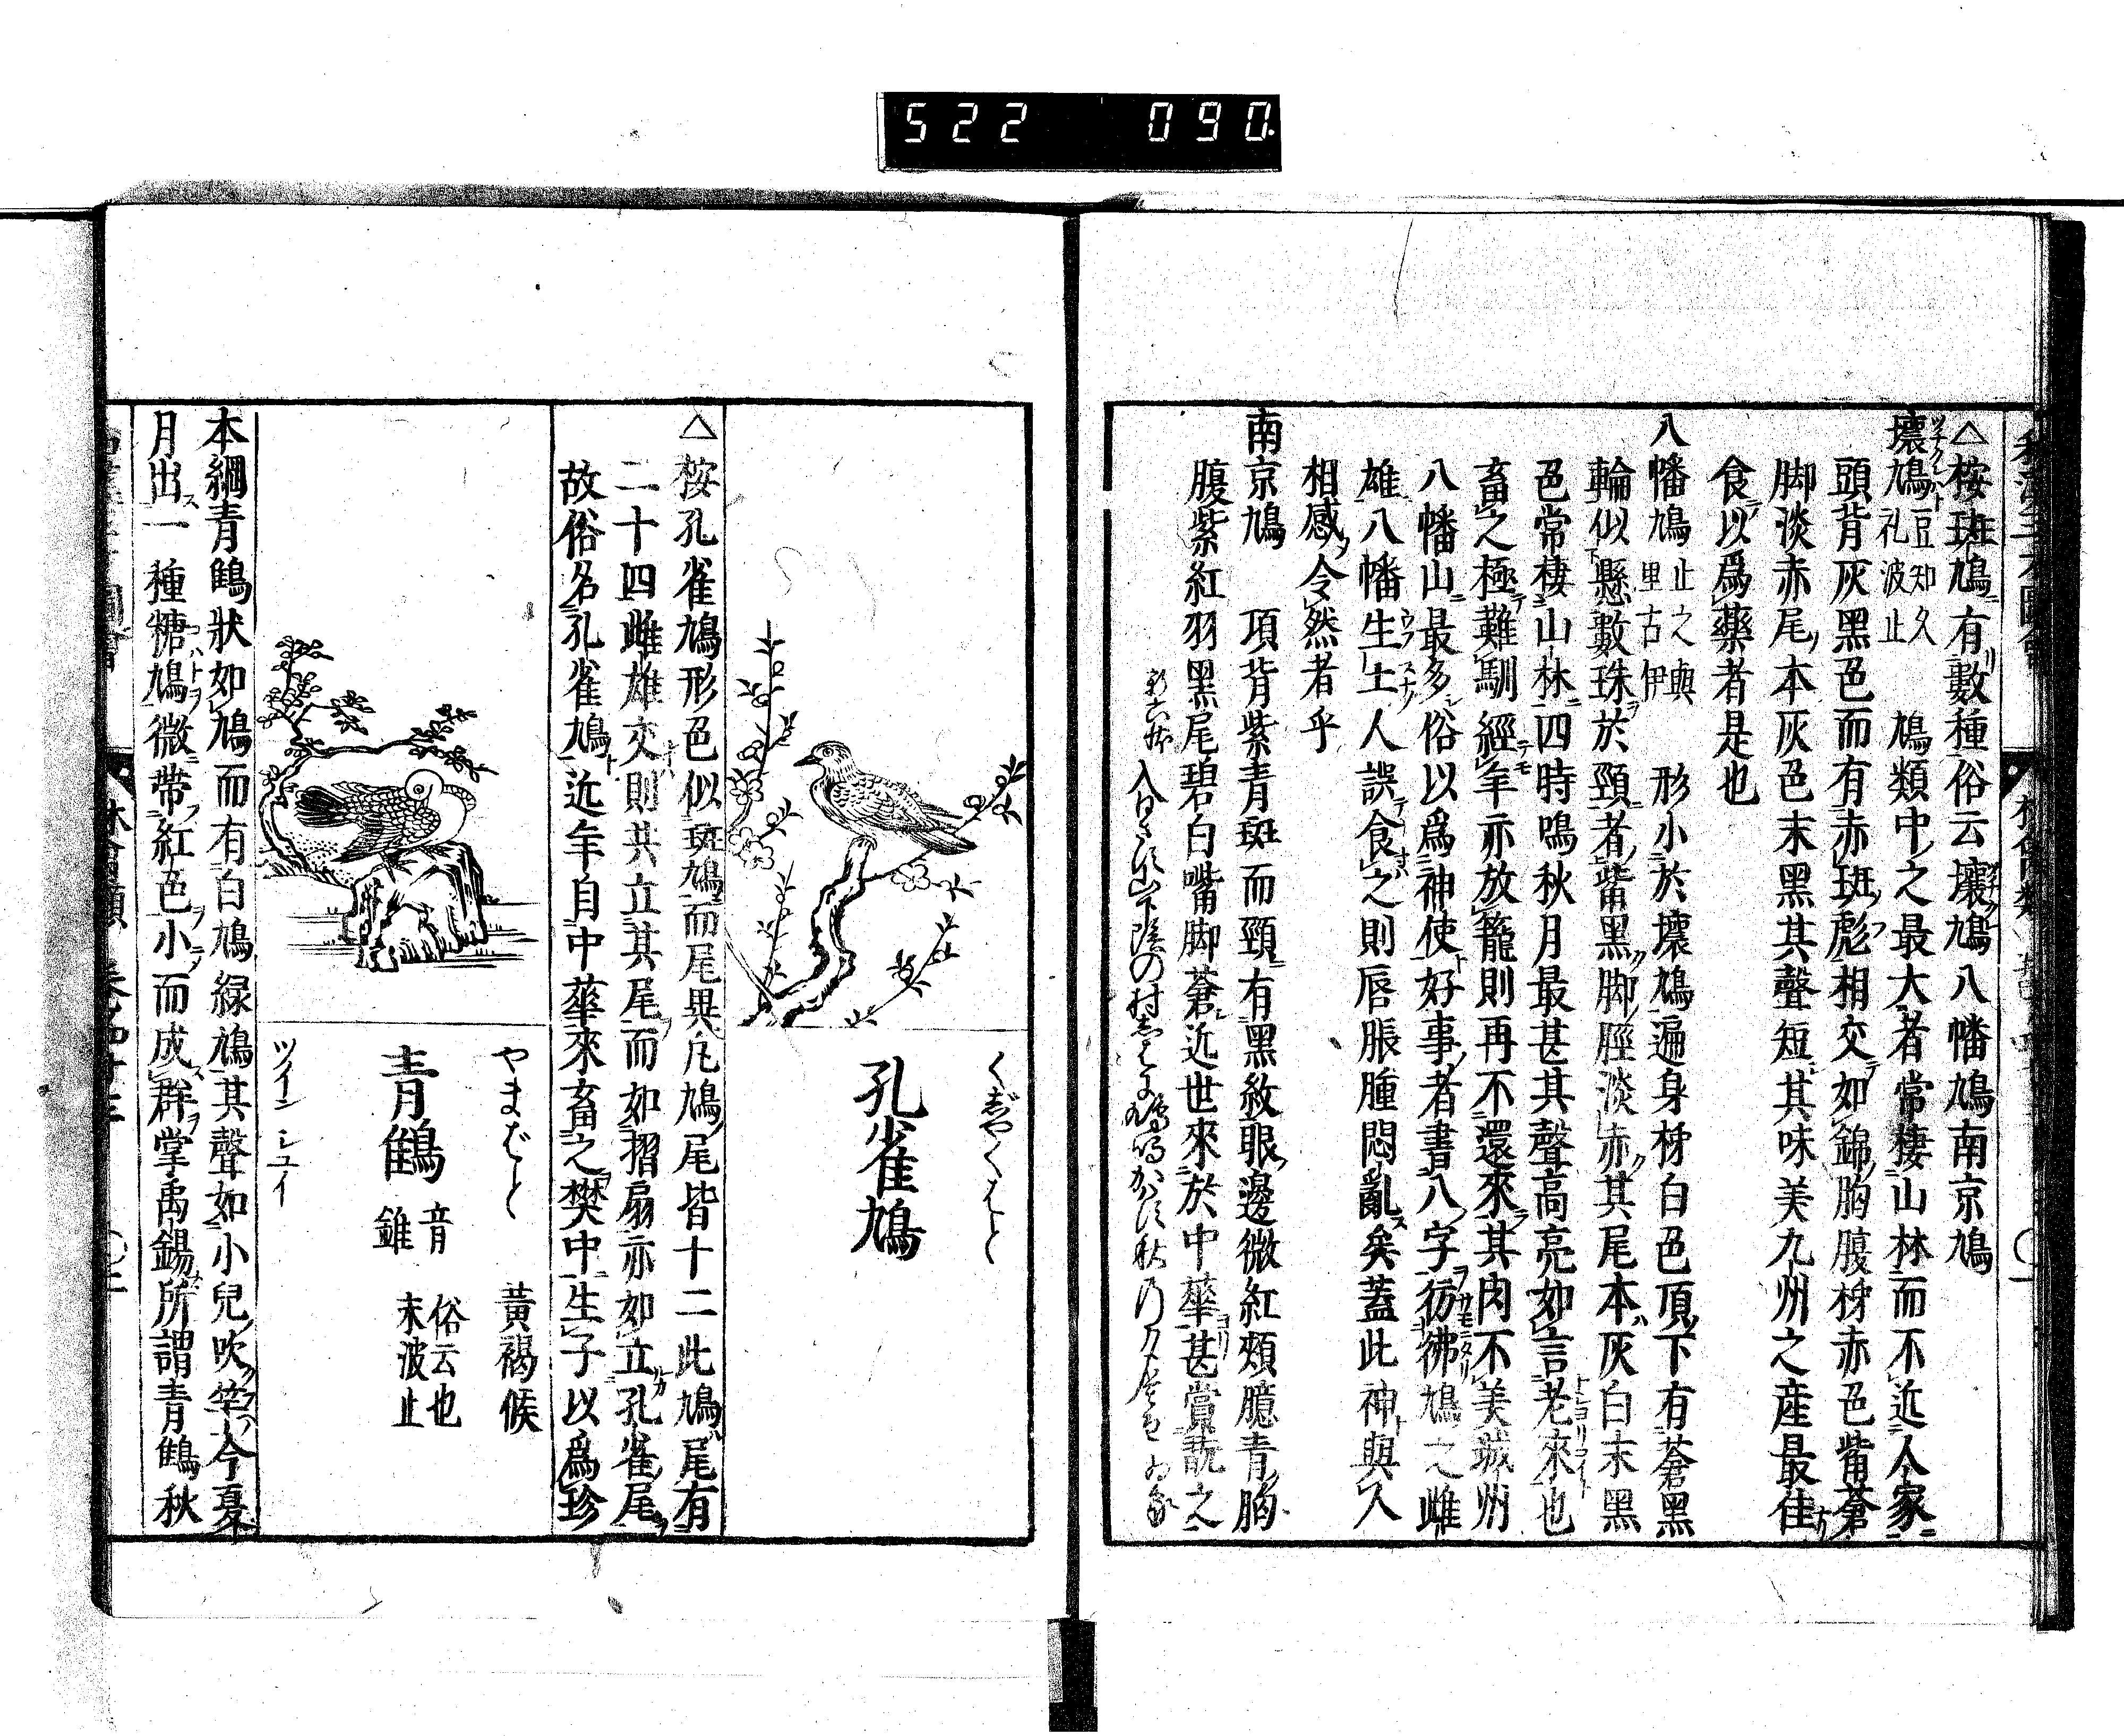 522 090
△桉斑鳩有數種俗云壤鳩八幡鳩南京鳩
壤鳩 豆知久禮波止 鳩類中之最大者常棲山林而不近人家
頭背灰黑色而有赤斑彪相交如錦胸腹桛赤色觜蒼
脚淡赤尾本灰色末黑其聲短其味美九州之産最佳
食以爲藥者是也
八幡鳩 止之與里古伊 形小於壤鳩遍身桛白色頂下有蒼黑
輪似懸數珠於頸者觜黑脚脛淡赤其尾本灰白末黑
色常棲山林四時鳴秋月最甚其聲高亮如言老來也
畜之極難馴經年亦放籠則再不還來其肉不美城州
八幡山最多俗以爲神使好事者書八字彷彿鳩之雌
雄八幡生土人誤食之則唇脹腫悶亂矣蓋此神與人
相感令然者乎
南京鳩 項背紫青斑而頸有黑紋眼邊微紅頰臆青胸
腹紫紅羽黑尾碧白嘴脚蒼近世來於中華甚賞翫之
くじやくはと
孔雀鳩
△桉孔雀鳩形色似斑鳩而尾異凡鳩尾皆十二此鳩尾有
二十四雌雄交則共立其尾而如摺扇亦如立孔雀尾
故俗名孔雀鳩近年自中華來畜之樊中生子以爲珍
やまばと 黃褐候
青䳡 音錐 俗云也末波止
ツイン シユイ
本綱青䳡狀如鳩而有白鳩緑鳩其聲如小兒吹竽今夏
月出一種糖鳩微帶紅色小而成群掌禹錫所謂青䳡秋